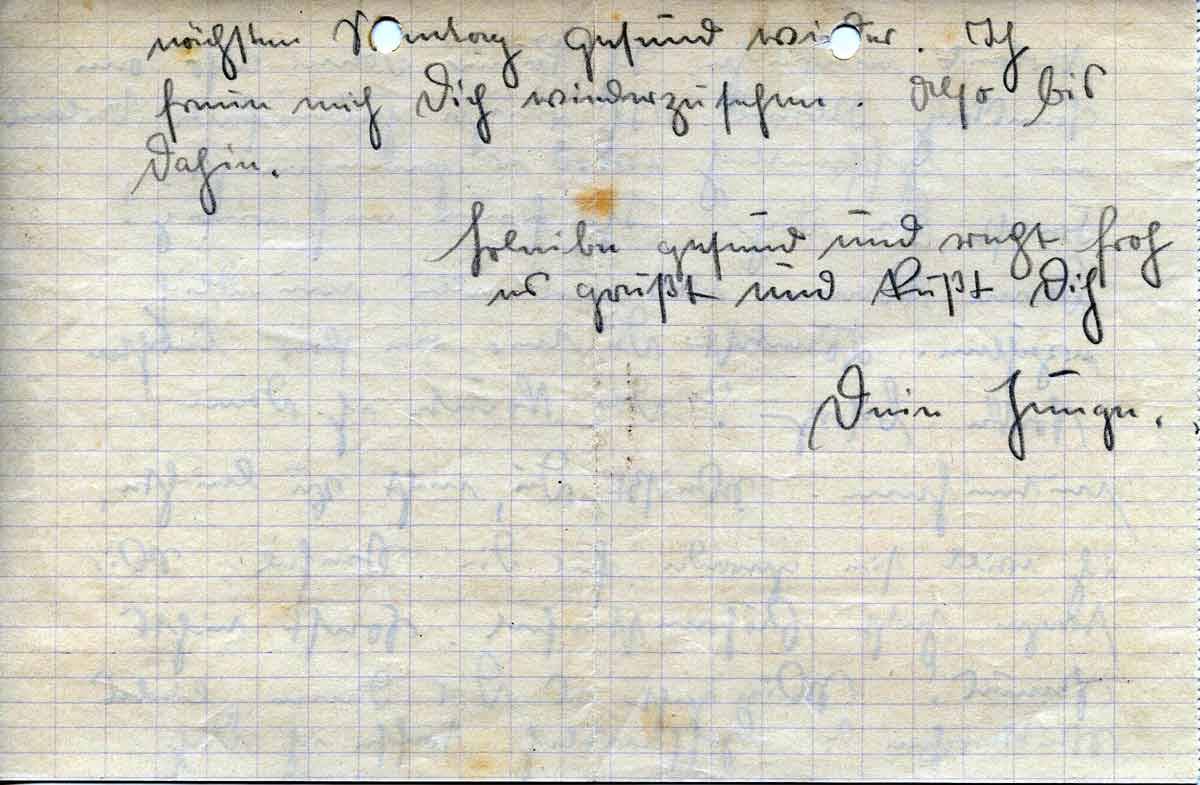 nächsten Sonntag gesund wieder. Ich
freue mich Dich wiederzusehen. Also bis
dahin.
bleibe gesund und recht froh
es grüßt und küßt Dich
Dein Junge.